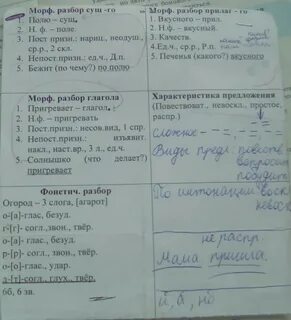 Морф. разбор сущ -го
1. Полю – сущ.
2. Н.ф – поле
3. Пост.призн.: нариц., неодуш.,
ср.р., 2 скл.
4. Непост.призн.: ед.ч., Д.п.
5. Бежит (по чему?) по полю
Морф. разбор прилаг - го
1. Вкусного – прил.
2. Н.ф - вкусный.
3. Качеств.
4. Ед.ч., ср.р., Р.п.
5. Печенья (какого?) вкусного
Морф. разбор глагола
1. Пригревает – глагол.
2. Н.ф – пригревать
3. Пост.призн.: несов.вид, I спр.
4. Непост.призн.: изъявит.
накл., наст.вр., 3 л., ед.ч.
5. Солнышко (что делает?)
пригревает
Характеристика предложения
(Повествоват., невосклиц., простое,
распр.)
сложное
Виды предл: повеств
вопросит
побудит
Фонетич. разбор
Огород – 3 слога, [агарот]
о-[а]-глас, безуд.
г-[г]-согл.,звон., твёр.
о-[а]-глас, безуд.
р-[р]-согл., звон., твёр.
о-[о]-глас., удар.
д-[т]-согл., глух., твёр.
6б, 6 зв.
По интонации воск
невоск
нераспр.
Мама пришла.
и, а, но